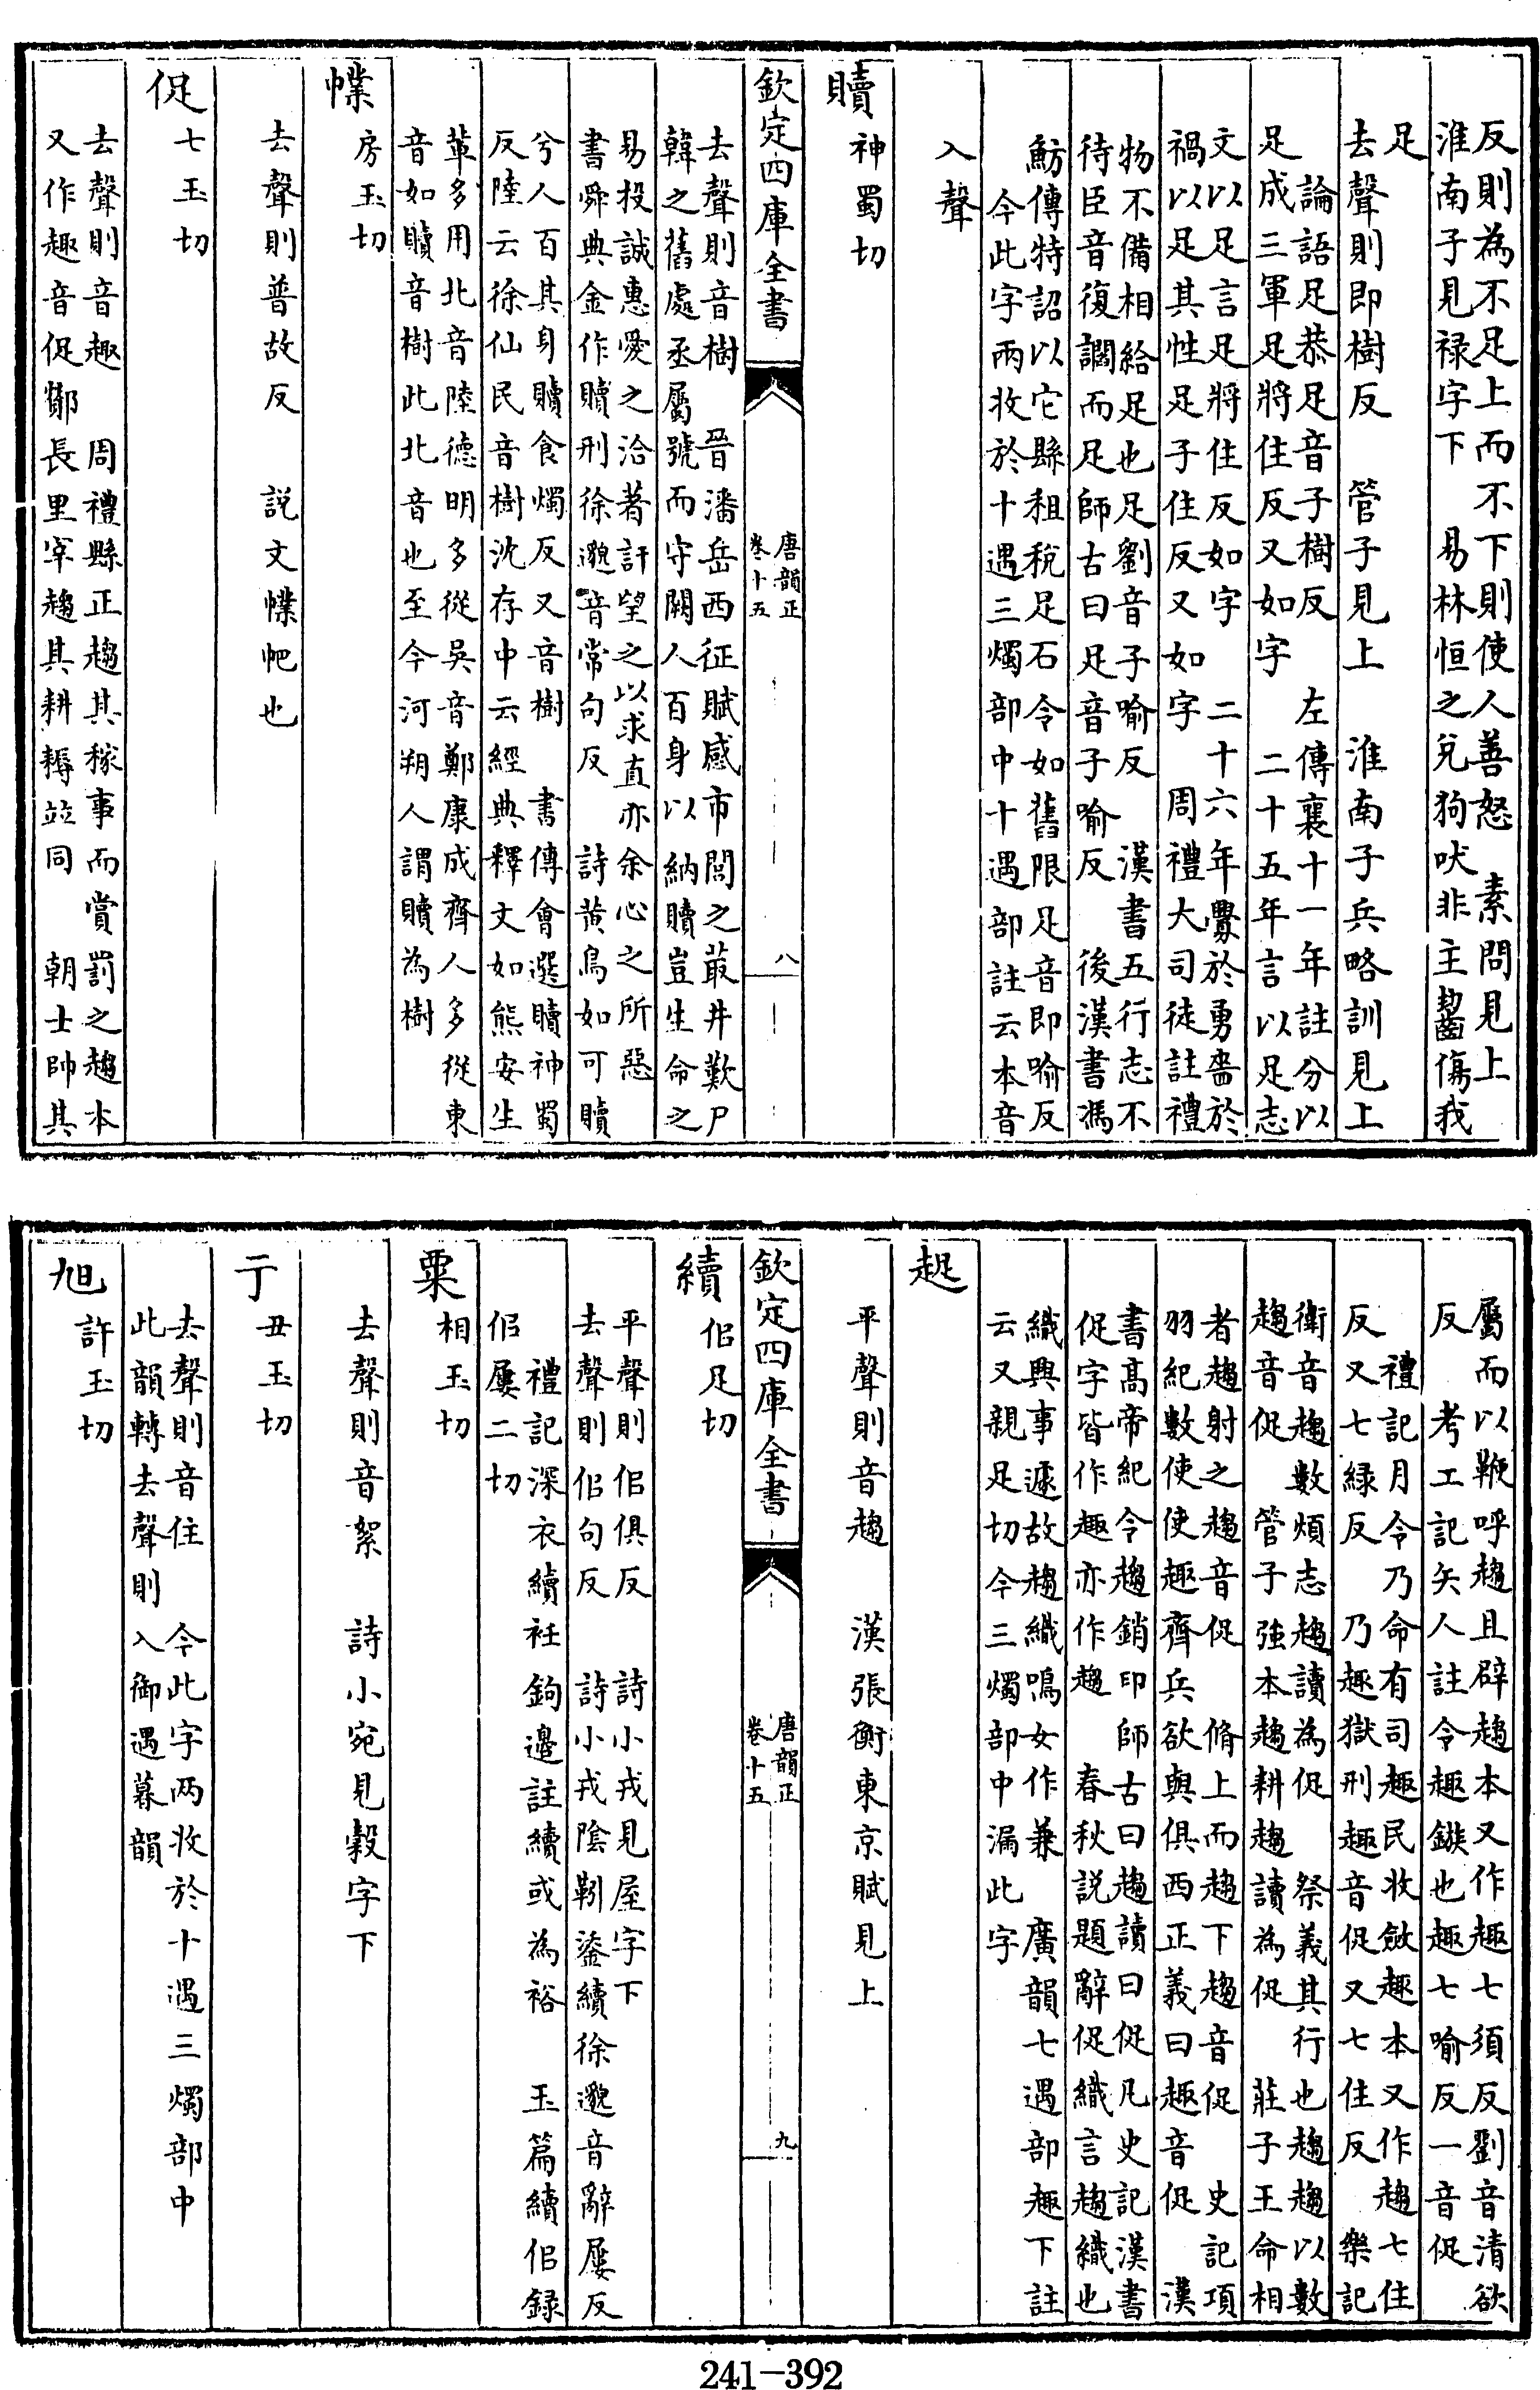 反則為不足上而不下則使人善怒　素問見上
淮南子見祿字下　易林恒之兌狗吠非主齧傷我
足
去聲則即樹反　管子見上　淮南子兵略訓見上
論語足恭足音子樹反　左傳襄十一年註分以
足成三軍足將住反又如字　二十五年言以足志
文以足言足將住反如字　二十六年釁於勇嗇於
禍以足其性足子住反又如字　周禮大司徒註禮
物不備相給足也足劉音子喻反　漢書五行志不
待臣音復讇而足師古曰足音子喻反　後漢書馮
魴傳特詔以它縣租稅足石令如舊限足音即喻反
今此字兩收於十遇三燭部中十遇部註云本音
入聲
贖神蜀切
欽定四庫全書
唐韻正
卷十五
八
去聲則音樹　晉潘岳西征賦感市閭之菆井歎尸
韓之舊處丞屬號而守闕人百身以納贖豈生命之
易投誠惠愛之洽著訐望之以求直亦余心之所惡
書舜典金作贖刑徐邈音常句反　詩黃鳥如可贖
兮人百其身贖食燭反又音樹　書傳會選贖神蜀
反陸云徐仙民音樹沈存中云經典釋文如熊安生
輩多用北音陸德明多從吳音鄭康成齊人多從東
音如贖音樹此北音也至今河朔人謂贖為樹
幞房玉切
去聲則普故反　說文幞帊也
促七玉切
去聲則音趣　周禮縣正趨其稼事而賞罰之趨本
又作趣音促酇長里宰趨其耕耨竝同　朝士帥其
屬而以鞭呼趨且辟趨本又作趣七須反劉音清欲
反　考工記矢人註令趣鏃也趣七喻反一音促
禮記月令乃命有司趣民收斂趣本又作趨七住
反又七緑反　乃趣獄刑趣音促又七住反　樂記
衛音趨數煩志趨讀為促　祭義其行也趨趨以數
趨音促　管子強本趨耕趨讀為促　莊子王命相
者趨射之趨音促　脩上而趨下趨音促　史記項
羽紀數使使趣齊兵欲與俱西正義曰趣音促　漢
書高帝紀令趨銷印師古曰趨讀曰促凡史記漢書
促字皆作趣亦作趨　春秋說題辭促織言趨織也
織興事遽故趨織鳴女作兼　廣韻七遇部趣下註
云又親足切今三燭部中漏此字
趗
平聲則音趨　漢張衡東京賦見上
欽定四庫全書
唐韻正
卷十五
九
續佀足切
平聲則佀俱反　詩小戎見屋字下
去聲則佀句反　詩小戎陰靷鋈續徐邈音辭屢反
禮記深衣續衽鉤邊註續或為裕　玉篇續佀録
佀屢二切
粟相玉切
去聲則音絮　詩小宛見穀字下
亍丑玉切
去聲則音住　今此字兩收於十遇三燭部中
此韻轉去聲則入御遇暮韻
旭許玉切
241-392